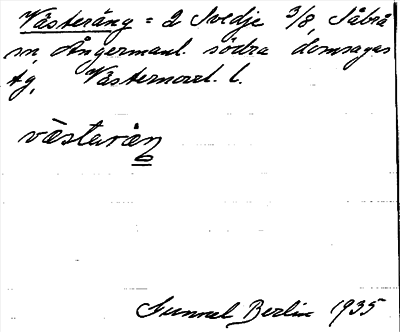 Västeräng = 2 Svedje 3/8, Säbrå
sn, Ångermanl. södra domsagas
tg, Västernorrl. l.
västeräŋ
Gunnel Berlin 1935